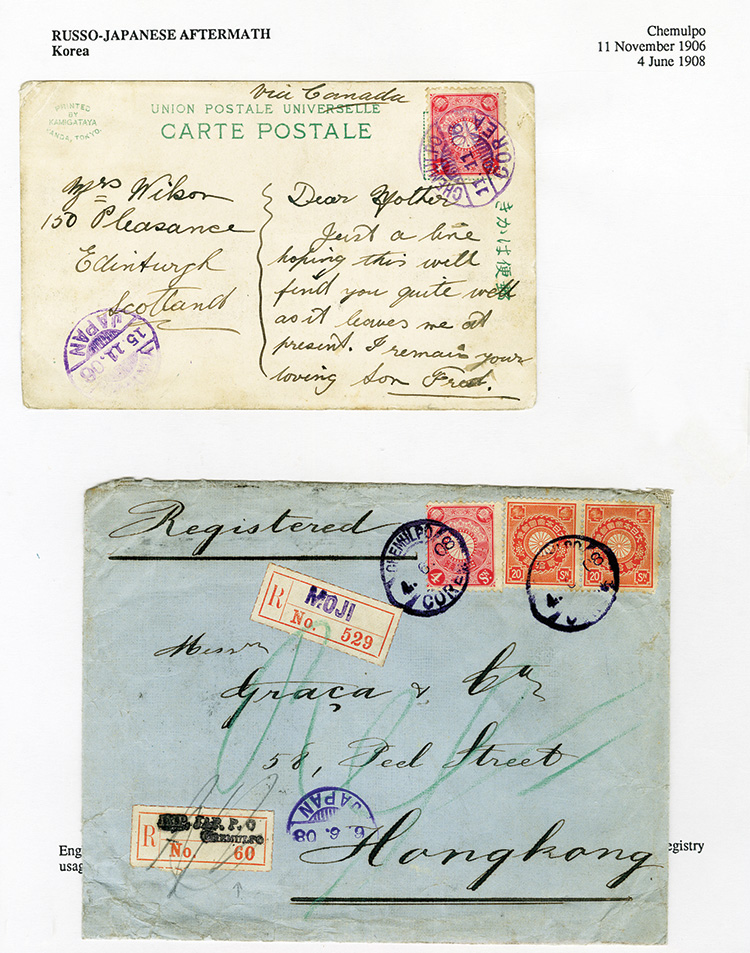 RUSSO-JAPANESE AFTERMATH
Korea
Chemulpo
11 November 1906
4 June 1908
PRINTED
BY
KAMIGATAYA
KANDA, TOKYO.
via Canada
UNION POSTALE UNIVERSELLE
CARTE POSTALE
CHEMULPO
11.11.06
COREA
Mrs Wilson
150 Pleasance
Edinburgh
Scotland
Dear Mother
Just a line
hoping this will
find you quite well
as it leaves me at
present. I remain your
loving Son Fred.
きかは便郵
JAPAN
15.11.06
Registered
CHEMULPO
4.6.08
COREA
4 Sn
20 Sn
20 Sn
R MOJI
No. 529
Messrs
Graça & Co
58, Peel Street
Hongkong
JAPAN
6.6.08
R IMP. JAP. P. O
CHEMULPO
No. 60
Eng
registry
usag